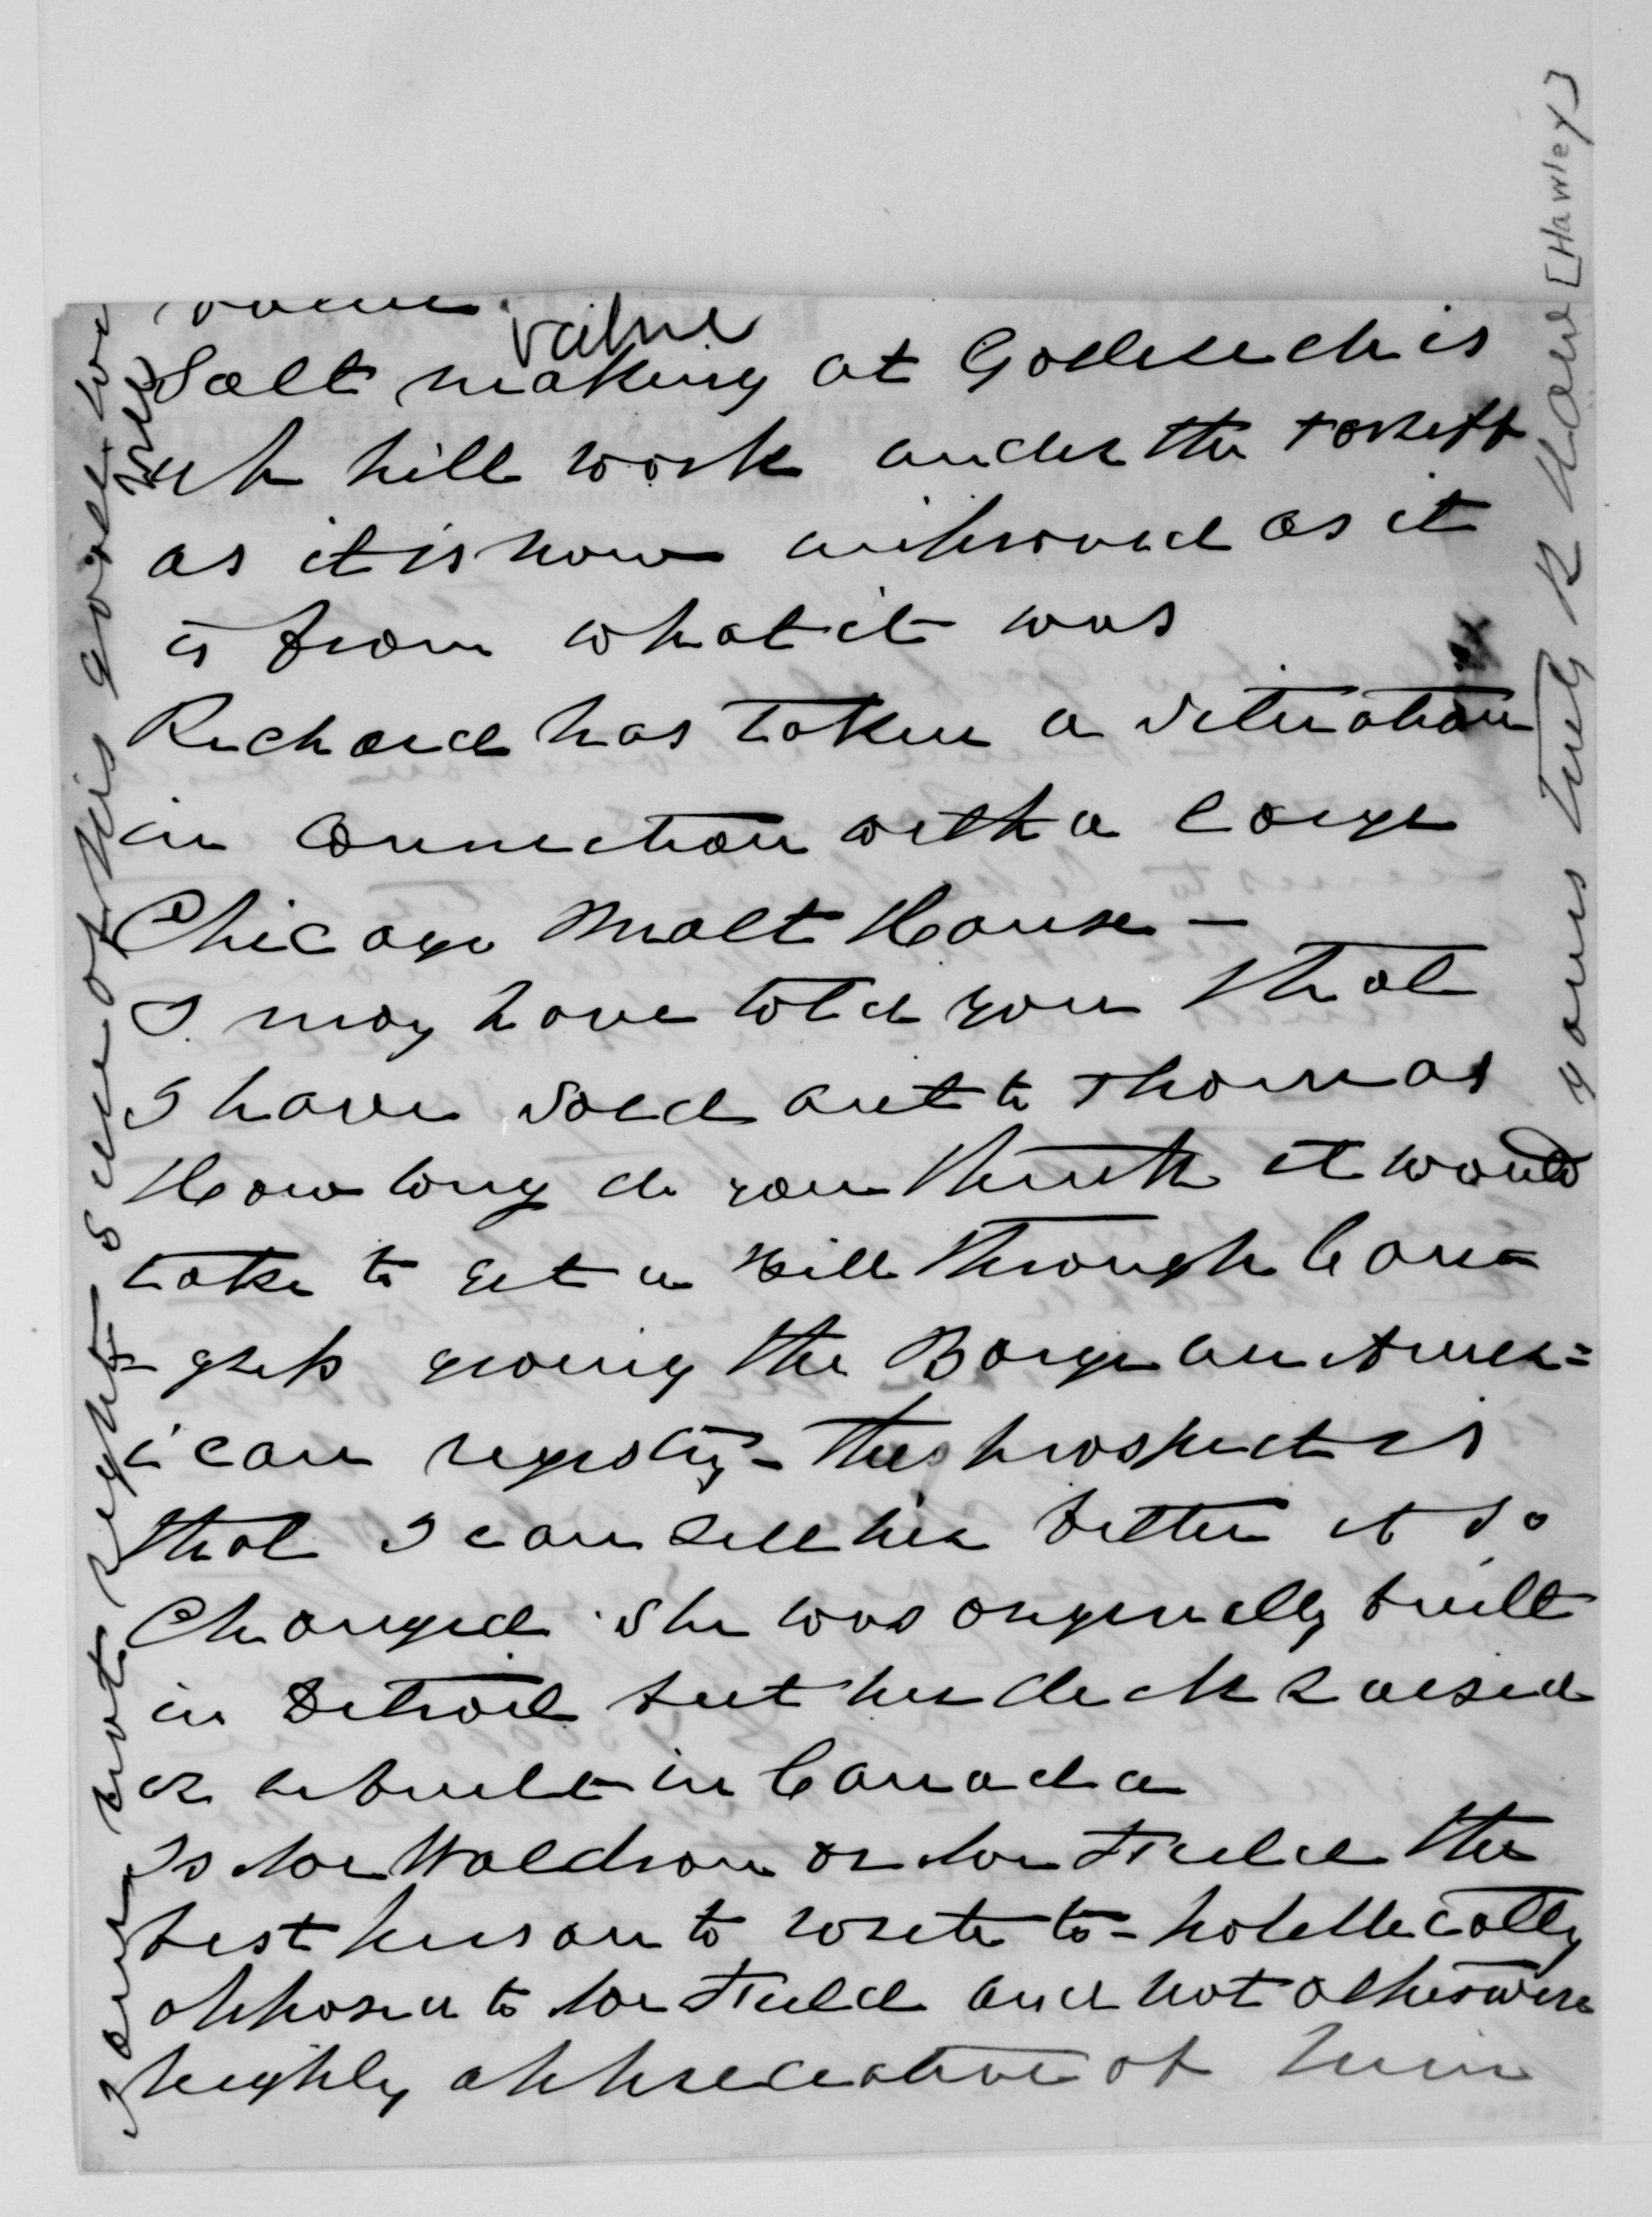 value
Salt making at Goderich is
up hill work under the tariff
as it is now improved as it
is from what it was
Richard has taken a situation
in connection with a large
Chicago Malt House —
I may have told you that
I have sold out to Thomas
How long do you think it would
take to get a Bill through Con=
=gress giving the Barge an Amer=
ican registry - the prospect is
that I can sell her better if so
Changed She was originally built
in Detroit but her deck raised
or rebuilt in Canada
Is Mr Waldron or Mr Field the
best person to write to - politically
opposed to Mr Field and not otherwise
highly appreciative of him
I am not right
some of this
yours truly R Hawl [Hawley]